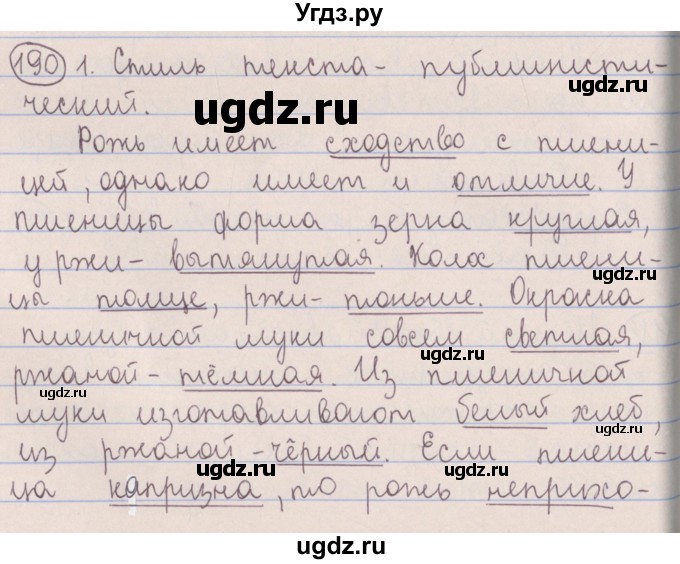 Угдз.ру
190 1. Стиль текста - публицисти-
ческий.
Рожь имеет сходство с пшени-
цей, однако имеет и отличие. У
пшеницы форма зерна круглая,
у ржи - вытянутая. Колос пшени-
цы толще, ржи - тоньше. Окраска
пшеничной муки совсем светлая,
ржаной - тёмная. Из пшеничной
муки изготавливают белый хлеб,
из ржаной - чёрный. Если пшени-
ца капризна, то рожь неприхо-
ugdz.ru
ugdz.ru
ugdz.ru
ugdz.ru
ugdz.ru
ugdz.ru
ugdz.ru
ugdz.ru
ugdz.ru
ugdz.ru
ugdz.ru